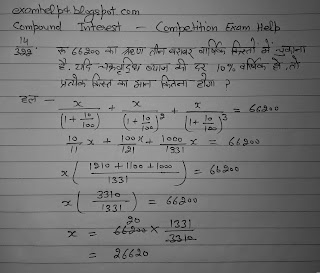 examhelp4.blogspot.com
Compound Interest – Competition Exam Help
14
रू 66200 का ऋण तीन बराबर वार्षिक किस्तों में चुकाना
है. यदि चक्रवृद्धि ब्याज की दर 10% वार्षिक हो, तो
प्रत्येक किस्त का मान कितना होगा ?
हल — x/(1+10/100) + x/(1+10/100)² + x/(1+10/100)³ = 66200
10/11 x + 100x/121 + 1000/1331 x = 66200
x (1210 + 1100 + 1000 / 1331) = 66200
x (3310/1331) = 66200
x = 66200 × 1331/3310
20
= 26620